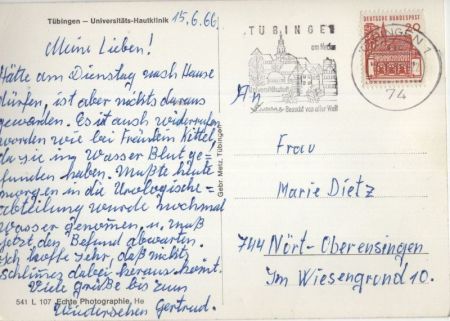 Tübingen – Universitäts-Hautklinik 15.6.66
Meine Lieben!
Hätte am Dienstag nach Hause
dürfen, ist aber nichts daraus
geworden. Es ist auch widerrufen
worden wie bei Fräulein Kittel
da sie im Wasser Blut ge-
funden haben. Mußte heute
morgen in die Urologische-
abteilung wurde nochmal
Wasser genommen, u. muß
jetzt den Befund abwarten.
Ich hoffe sehr, daß nichts
schlimmes dabei heraus kommt.
Viele Grüße bis zum
Wiedersehen Gertrud.
541 L 107 Echte Photographie, He
Gebr. Metz, Tübingen
TÜBINGEN
am Neckar
Universitätsstadt
Besucht von aller Welt
DEUTSCHE BUNDESPOST
20
TÜBINGEN 1
74
An
Frau
Marie Dietz
744 Nürt-Oberensingen
Im Wiesengrund 10.